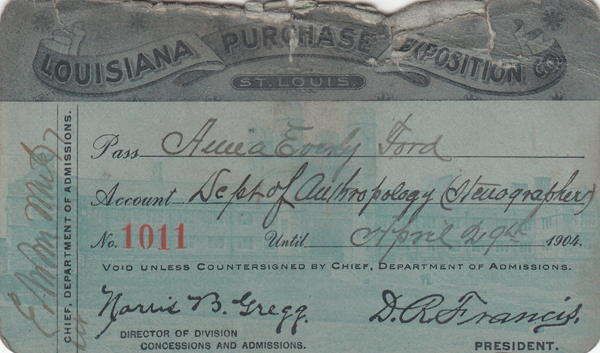 LOUISIANA PURCHASE EXPOSITION CO.
ST. LOUIS.
Pass Ford
Account Dept of Anthropology (Stenographer)
No. 1011 Until April 29th 1904.
VOID UNLESS COUNTERSIGNED BY CHIEF, DEPARTMENT OF ADMISSIONS.
Norris B. Gregg.
DIRECTOR OF DIVISION
CONCESSIONS AND ADMISSIONS.
D. R. Francis.
PRESIDENT.
CHIEF, DEPARTMENT OF ADMISSIONS.